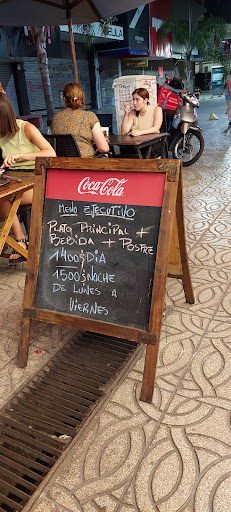 Coca-Cola
MENÚ EJECUTIVO
PLATO PRINCIPAL +
BEBIDA + POSTRE
1400$ DIA
1500$ NOCHE
DE LUNES A
VIERNES